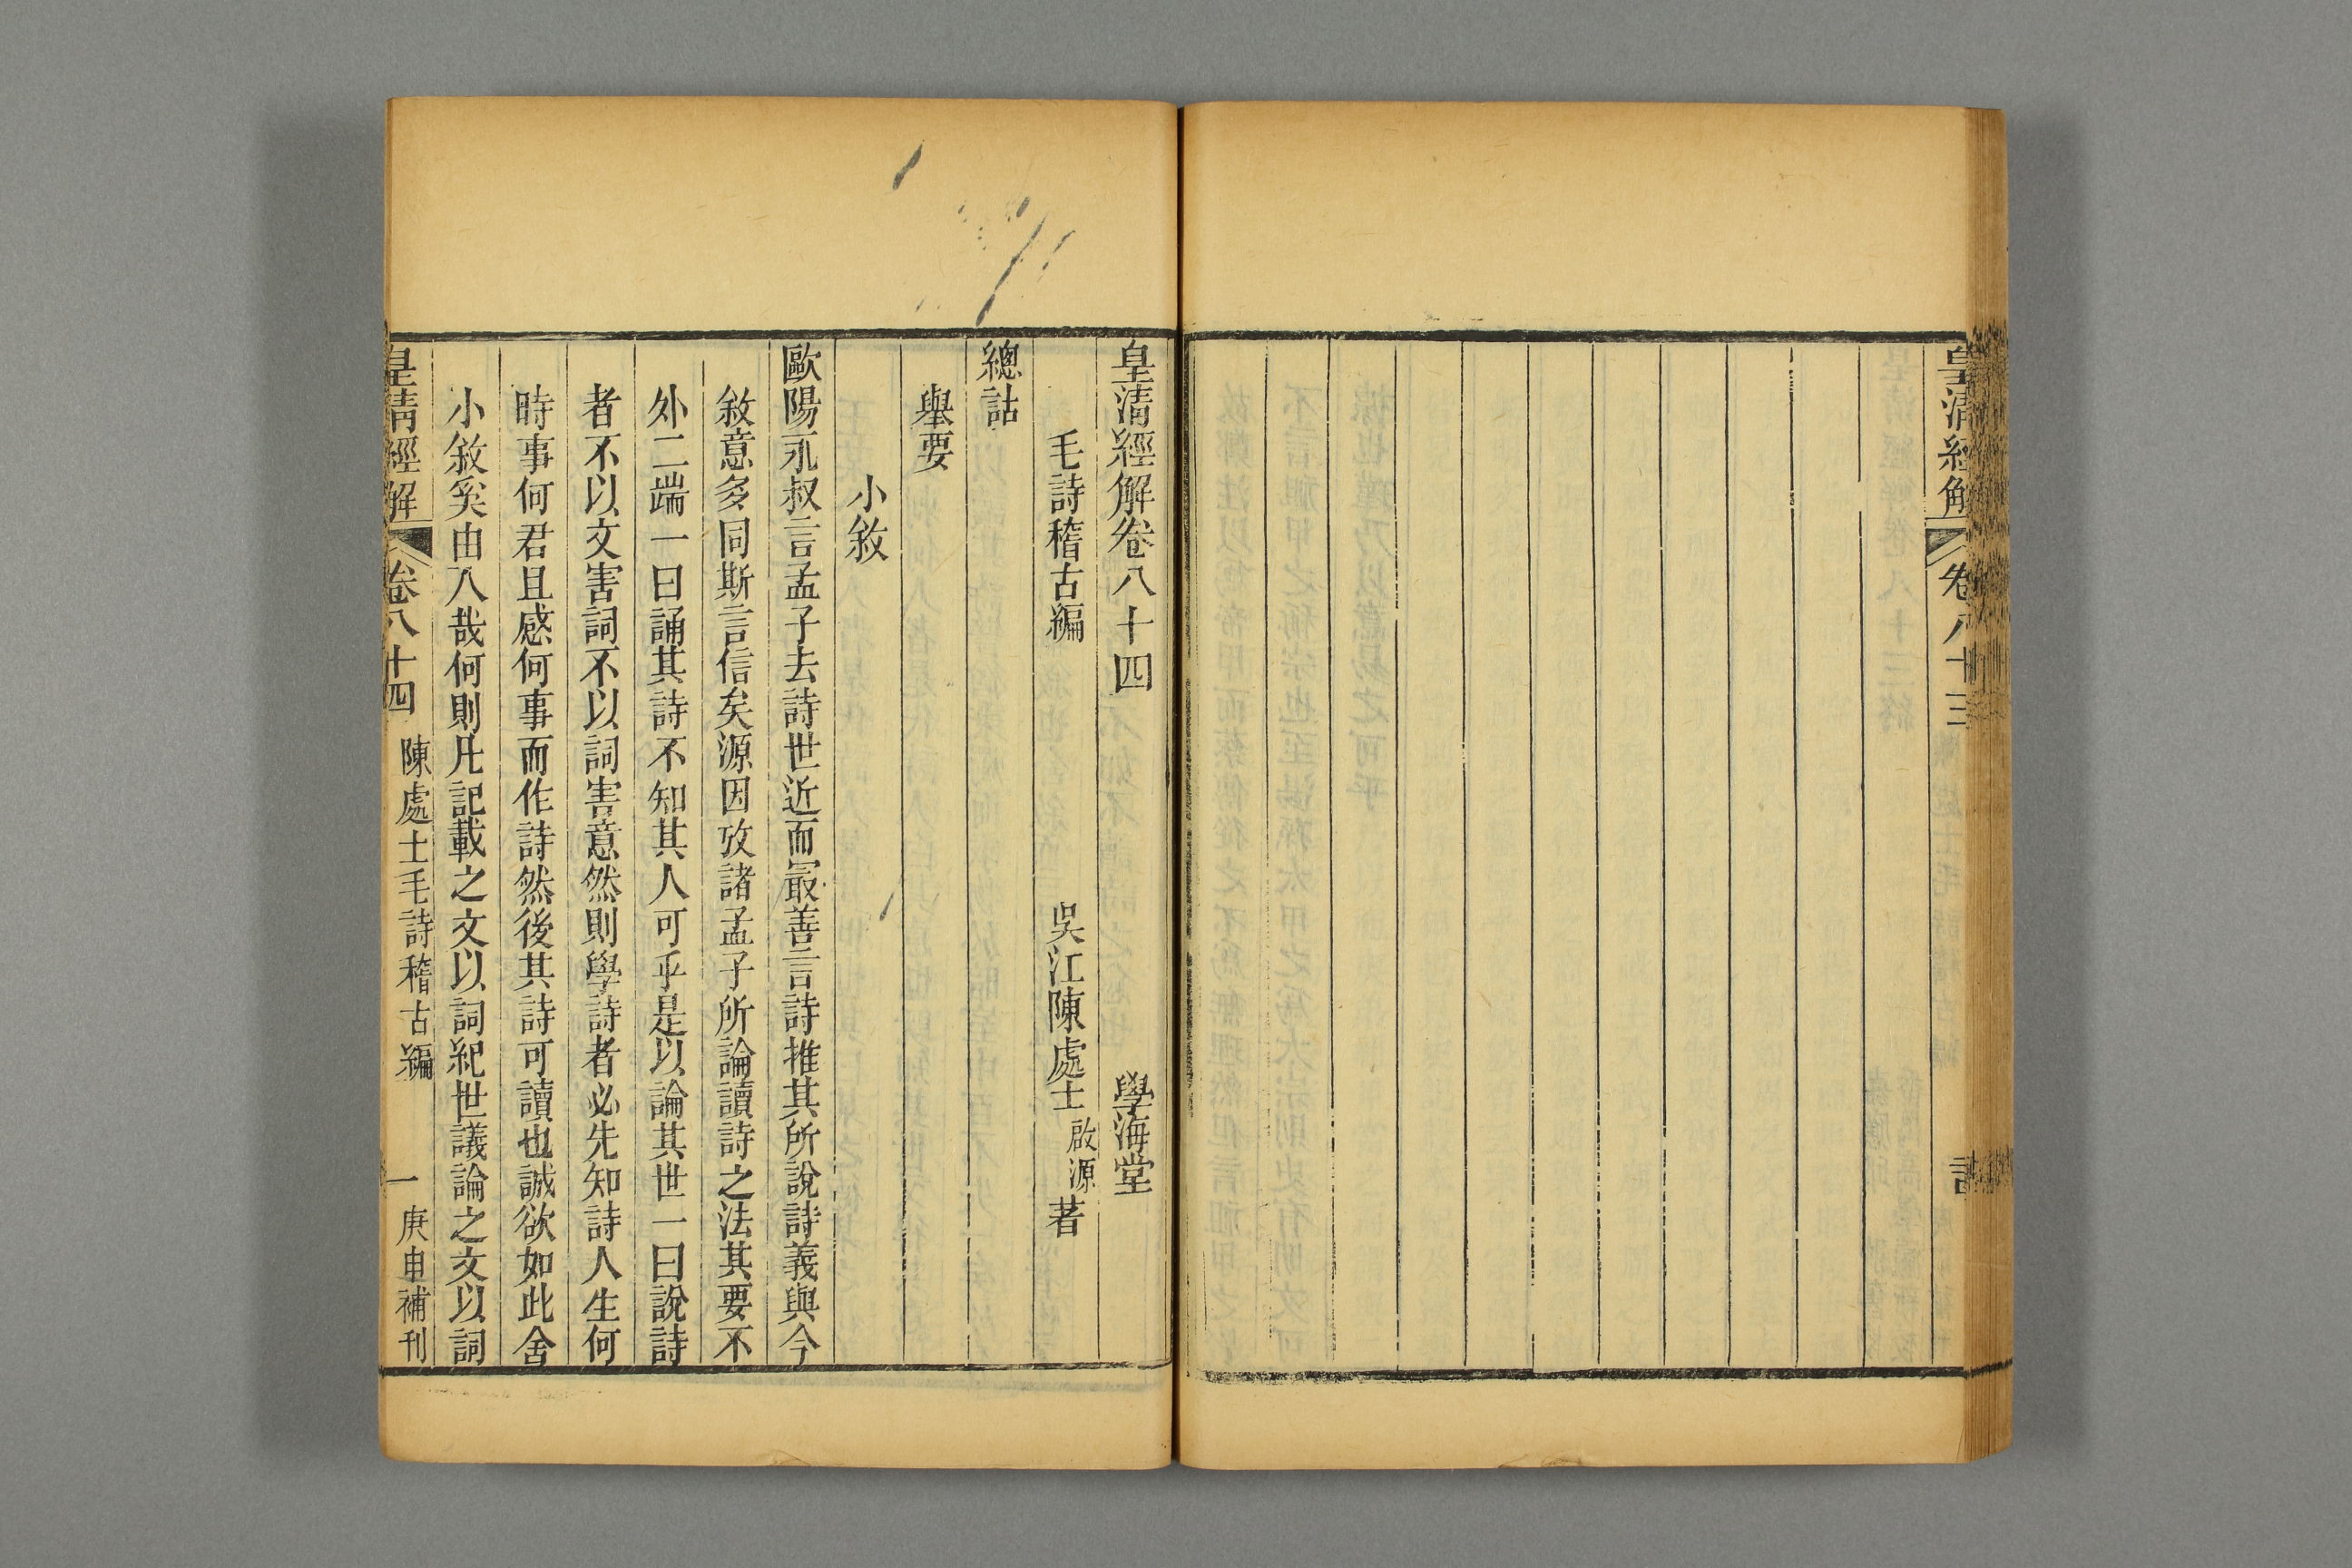 皇清經解
卷八十三
皇清經解卷八十四
學海堂
毛詩稽古編
吳江陳處士啟源著
總詁
舉要
小敘
歐陽永叔言孟子去詩世近而最善言詩推其所說詩義與今
敘意多同斯言信矣源因攷諸孟子所論讀詩之法其要不
外二端一曰誦其詩不知其人可乎是以論其世一曰說詩
者不以文害詞不以詞害意然則學詩者必先知詩人生何
時事何君且感何事而作詩然後其詩可讀也誠欲如此舍
小敘奚由入哉何則凡記載之文以詞紀世議論之文以詞
皇清經解
卷八十四
陳處士毛詩稽古編
一
庚申補刊